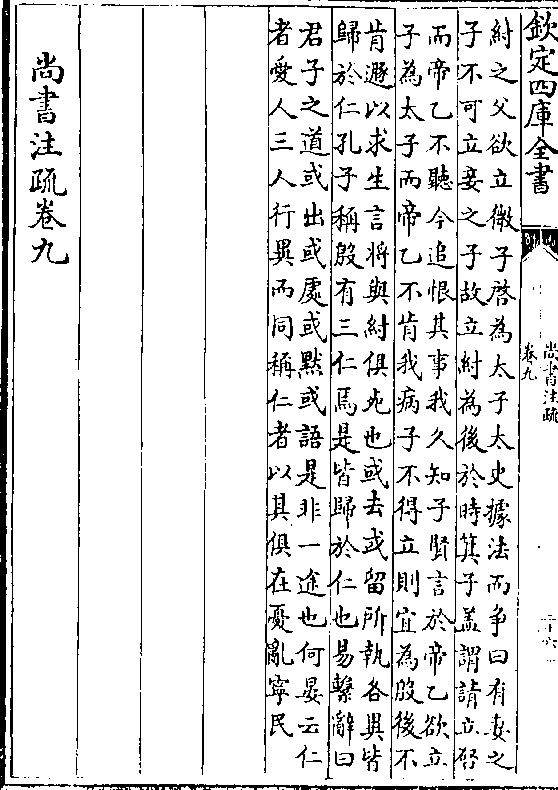 欽定四庫全書
尚書注疏
卷九
紂之父欲立微子啓為太子太史據法而争曰有妻之
子不可立妾之子故立紂為後於時箕子盖謂請立啓
而帝乙不聽今追恨其事我久知子賢言於帝乙欲立
子為太子而帝乙不肯我病子不得立則宜為殷後不
肯遯以求生言將與紂俱死也或去或留所執各異皆
歸於仁孔子稱殷有三仁焉是皆歸於仁也易繫辭曰
君子之道或出或處或黙或語是非一途也何晏云仁
者愛人三人行異而同稱仁者以其俱在憂亂寧民
尚書注疏卷九